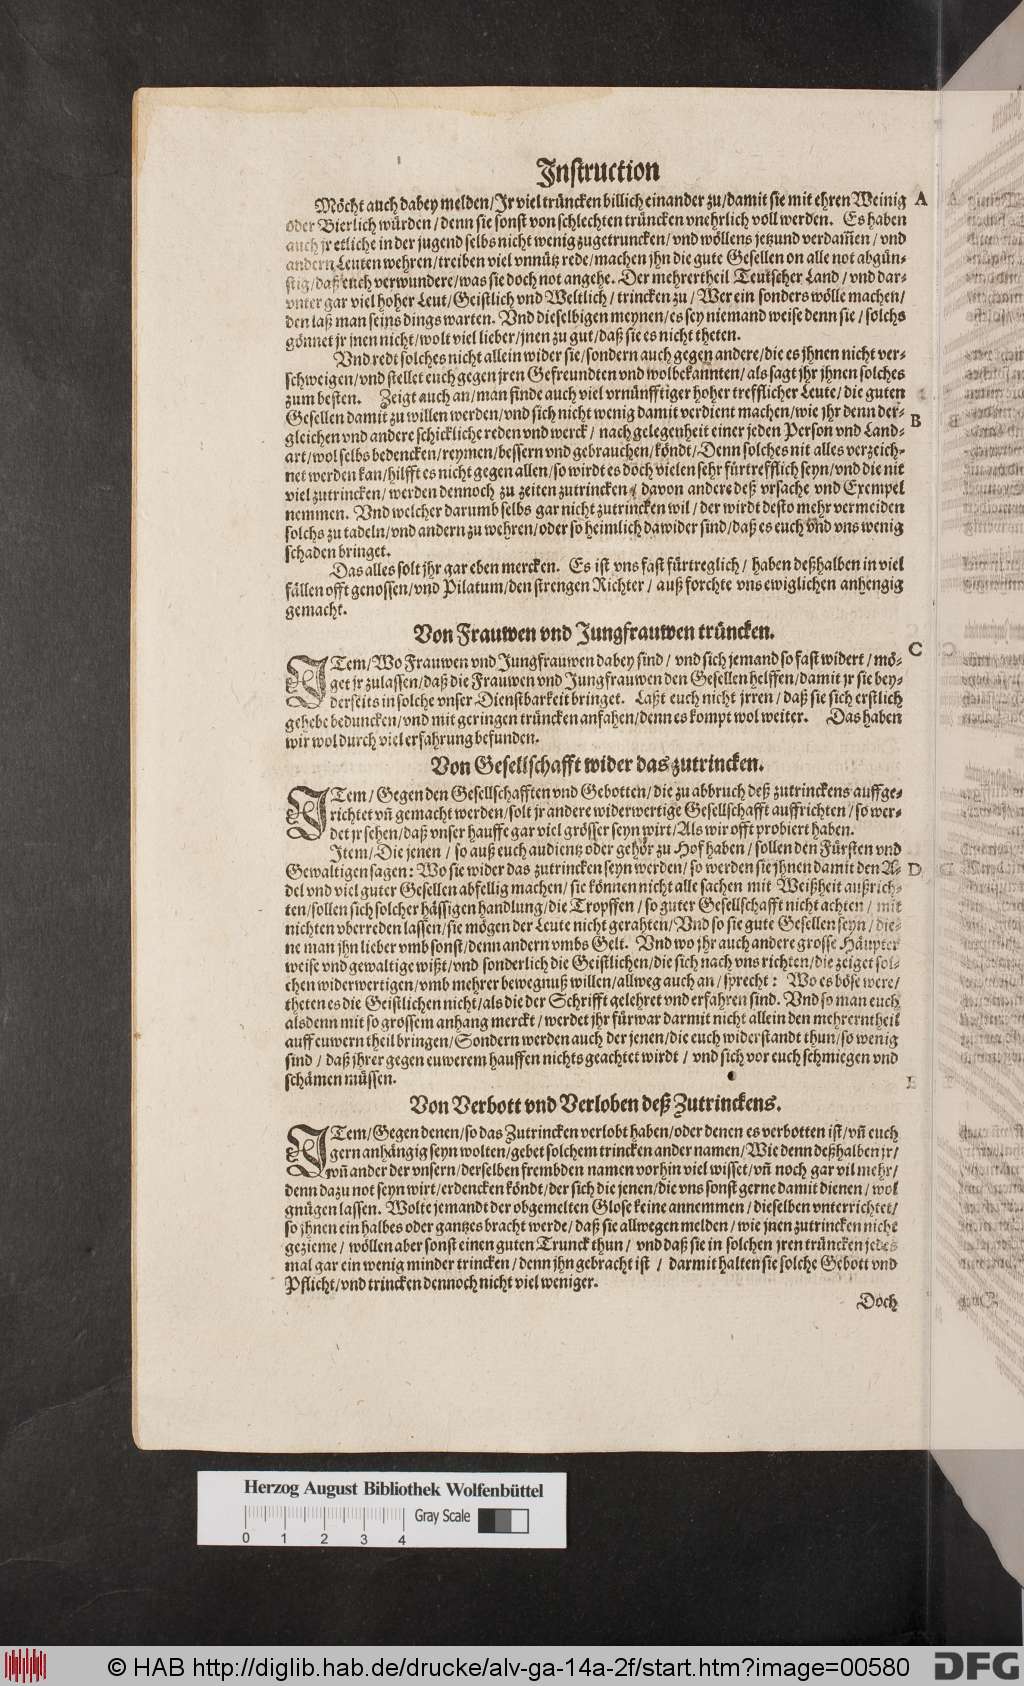 Instruction
Möcht auch dabey melden/Jr viel trüncken billich einander zu/damit sie mit ehren Weinig A
oder Bierlich würden/denn sie sonst von schlechten trüncken vnehrlich voll werden. Es haben
auch jr etliche in der jugend selbs nicht wenig zugetruncken/vnd wöllens jetzund verdam̄en/vnd
andern Leuten wehren/treiben viel vnnütz rede/machen jhn die gute Gesellen on alle not abgün-
stig/daß euch verwundere/was sie doch not angehe. Der mehrertheil Teutscher Land/vnd dar-
vnter gar viel hoher Leut/Geistlich vnd Weltlich/trincken zu/Wer ein sonders wölle machen/
den laß man seins dings warten. Vnd dieselbigen meynen/es sey niemand weise denn sie/solchs
gönnet jr jnen nicht/wolt viel lieber/jnen zu gut/daß sie es nicht theten.
Vnd redt solches nicht allein wider sie/sondern auch gegen andere/die es jhnen nicht ver-
schweigen/vnd stellet euch gegen jren Gefreundten vnd wolbekannten/als sagt jhr jhnen solches
zum besten. Zeigt auch an/man finde auch viel vrnünfftiger hoher trefflicher Leute/die guten
Gesellen damit zu willen werden/vnd sich nicht wenig damit verdient machen/wie jhr denn der- B
gleichen vnd andere schickliche reden vnd werck/nach gelegenheit einer jeden Person vnd Land-
art/wol selbs bedencken/reymen/bessern vnd gebrauchen/köndt/Denn solches nit alles verzeich-
net werden kan/hilfft es nicht gegen allen/so wirdt es doch vielen sehr fürtrefflich seyn/vnd die nit
viel zutrincken/werden dennoch zu zeiten zutrincken/davon andere deß vrsache vnd Exempel
nemmen. Vnd welcher darumb selbs gar nicht zutrincken wil/der wirdt desto mehr vermeiden
solchs zu tadeln/vnd andern zu wehren/oder so heimlich dawider sind/daß es euch vnd vns wenig
schaden bringet.
Das alles solt jhr gar eben mercken. Es ist vns fast fürtreglich/haben deßhalben in viel
fällen offt genossen/vnd Pilatum/den strengen Richter/auß forchte vns ewiglichen anhengig
gemacht.
Von Frauwen vnd Jungfrauwen trüncken.
C
JTem/Wo Frauwen vnd Jungfrauwen dabey sind/vnd sich jemand so fast widert/mö-
get jr zulassen/daß die Frauwen vnd Jungfrauwen den Gesellen helffen/damit jr sie bey-
derseits in solche vnser Dienstbarkeit bringet. Laßt euch nicht jrren/daß sie sich erstlich
gehebe beduncken/vnd mit geringen trüncken anfahen/denn es kompt wol weiter. Das haben
wir wol durch viel erfahrung befunden.
Von Gesellschafft wider das zutrincken.
JTem/Gegen den Gesellschafften vnd Gebotten/die zu abbruch deß zutrinckens auffge-
richtet vn̄ gemacht werden/solt jr andere widerwertige Gesellschafft auffrichten/so wer-
det jr sehen/daß vnser hauffe gar viel grösser seyn wirt/Als wir offt probiert haben.
Jtem/Die jenen/so auß euch audientz oder gehör zu Hof haben/sollen den Fürsten vnd
Gewaltigen sagen: Wo sie wider das zutrincken seyn werden/so werden sie jhnen damit den A- D
del vnd viel guter Gesellen abfellig machen/sie können nicht alle sachen mit Weißheit außrich-
ten/sollen sich solcher hässigen handlung/die Tropffen/so guter Gesellschafft nicht achten/mit
nichten vberreden lassen/sie mögen der Leute nicht gerahten/Vnd so sie gute Gesellen seyn/die-
ne man jhn lieber vmb sonst/denn andern vmbs Gelt. Vnd wo jhr auch andere grosse Häupter
weise vnd gewaltige wißt/vnd sonderlich die Geistlichen/die sich nach vns richten/die zeiget sol-
chen widerwertigen/vmb mehrer bewegnuß willen/allweg auch an/sprecht: Wo es böse were/
theten es die Geistlichen nicht/als die der Schrifft gelehret vnd erfahren sind. Vnd so man euch
alsdenn mit so grossem anhang merckt/werdet jhr fürwar darmit nicht allein den mehrerntheil
auff euwern theil bringen/Sondern werden auch der jenen/die euch widerstandt thun/so wenig
sind/daß jhrer gegen euwerem hauffen nichts geachtet wirdt/vnd sich vor euch schmiegen vnd
schämen müssen.
E
Von Verbott vnd Verloben deß Zutrinckens.
JTem/Gegen denen/so das Zutrincken verlobt haben/oder denen es verbotten ist/vn̄ euch
gern anhängig seyn wolten/gebet solchem trincken ander namen/Wie denn deßhalben jr/
vn̄ ander der vnsern/derselben frembden namen vorhin viel wisset/vn̄ noch gar vil mehr/
denn dazu not seyn wirt/erdencken köndt/der sich die jenen/die vns sonst gerne damit dienen/wol
gnügen lassen. Wolte jemandt der obgemelten Glose keine annemmen/dieselben vnterrichtet/
so jhnen ein halbes oder gantzes bracht werde/daß sie allwegen melden/wie jnen zutrincken nicht
gezieme/wöllen aber sonst einen guten Trunck thun/vnd daß sie in solchen jren trüncken jedes
mal gar ein wenig minder trincken/denn jhn gebracht ist/darmit halten sie solche Gebott vnd
Pflicht/vnd trincken dennoch nicht viel weniger.
Doch
Herzog August Bibliothek Wolfenbüttel
Gray Scale
0 1 2 3 4
© HAB http://diglib.hab.de/drucke/alv-ga-14a-2f/start.htm?image=00580
DFG